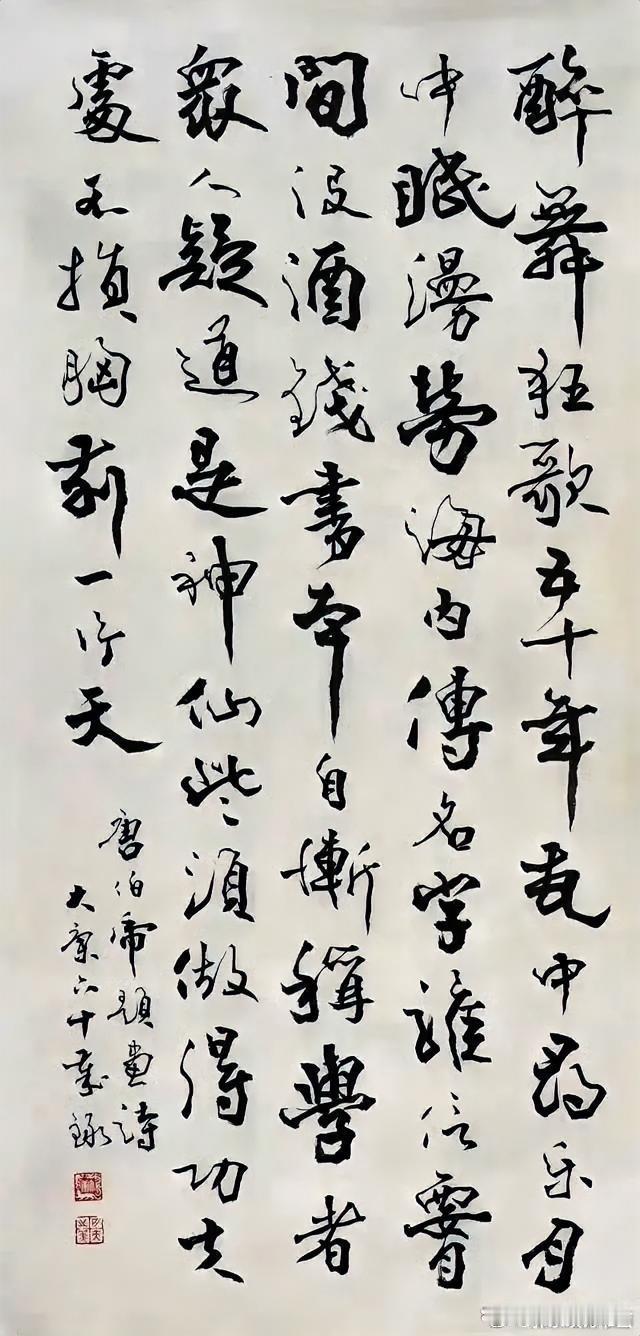 醉舞狂歌五十年花中乐月
中眠漫勞海内傳名字誰信腰
間没酒錢書本自慚稱學者
衆人疑道是神仙些須做得功夫
處不損胸前一片天
唐伯虎題畫詩
大康六十歲錄